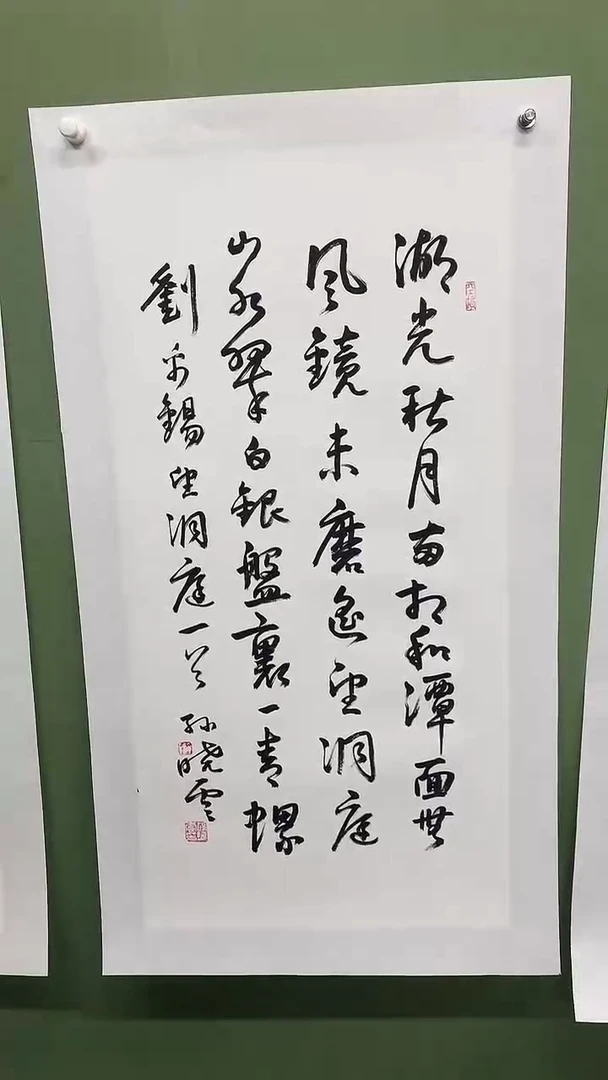 湖光秋月両相和潭面無
風鏡未磨遙望洞庭
山水翠白銀盤裏一青螺
劉禹錫望洞庭一首 孫曉雲